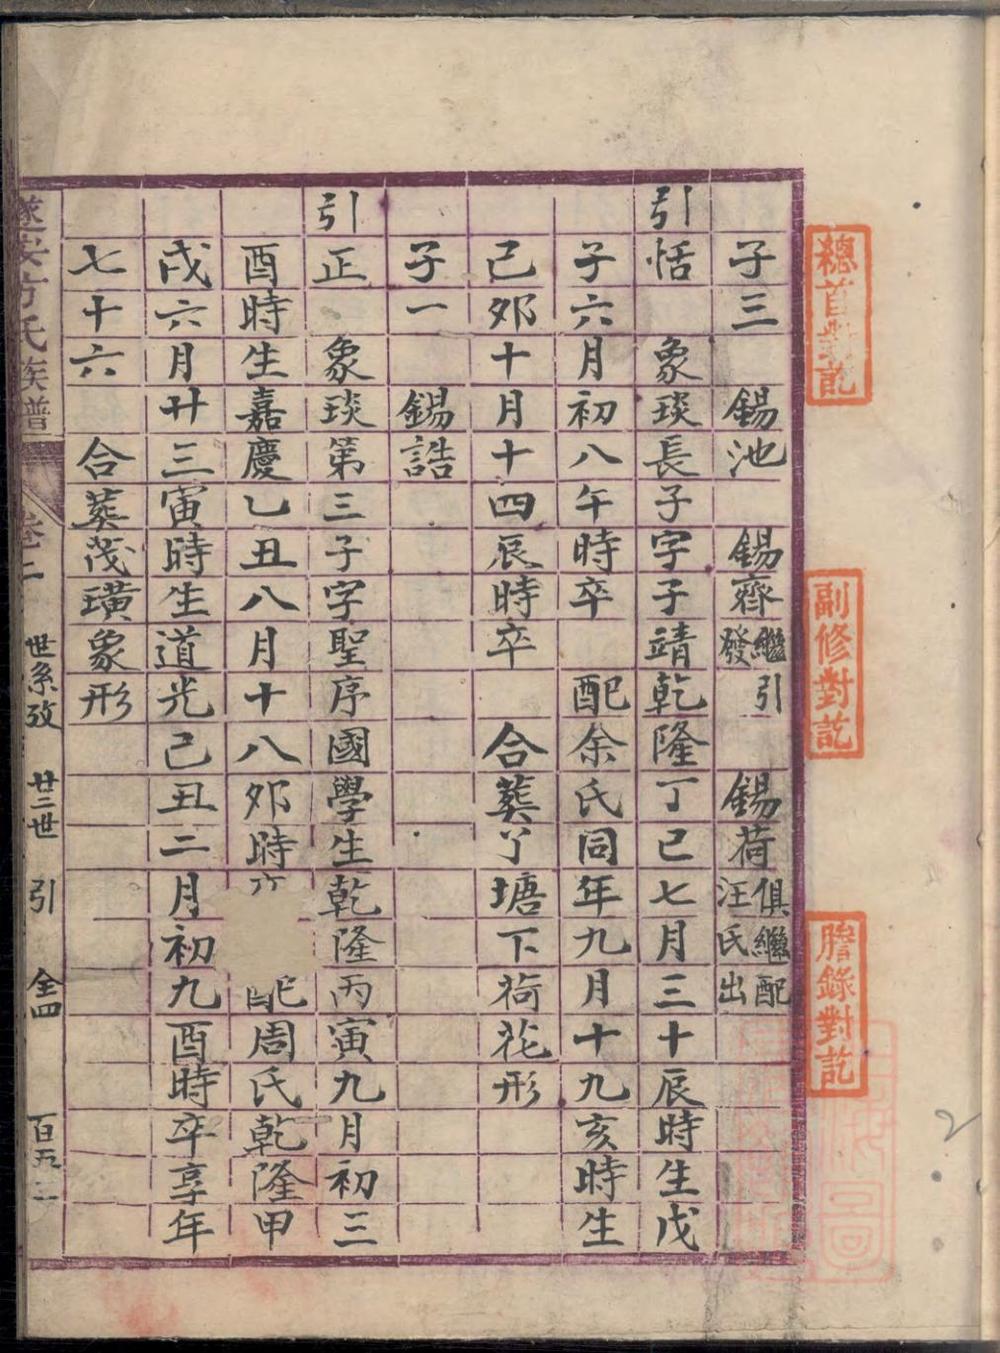 總首對訖
副修對訖
謄錄對訖
子三　錫池　錫齊繼引發　錫荷俱繼配汪氏出
引恬　象琰長子字子靖乾隆丁巳七月三十辰時生戊
子六月初八午時卒　配余氏同年九月十九亥時生
己邜十月十四辰時卒　合葬丫塘下荷花形
子一　錫誥
引正　象琰第三子字聖序國學生乾隆丙寅九月初三
酉時生嘉慶乙丑八月十八邜時　配周氏乾隆甲
戌六月廿三寅時生道光己丑二月初九酉時卒享年
七十六　合葬茂璜象形
遂安方氏族譜　卷二　世系攷　廿二世　引　仝四　百五二